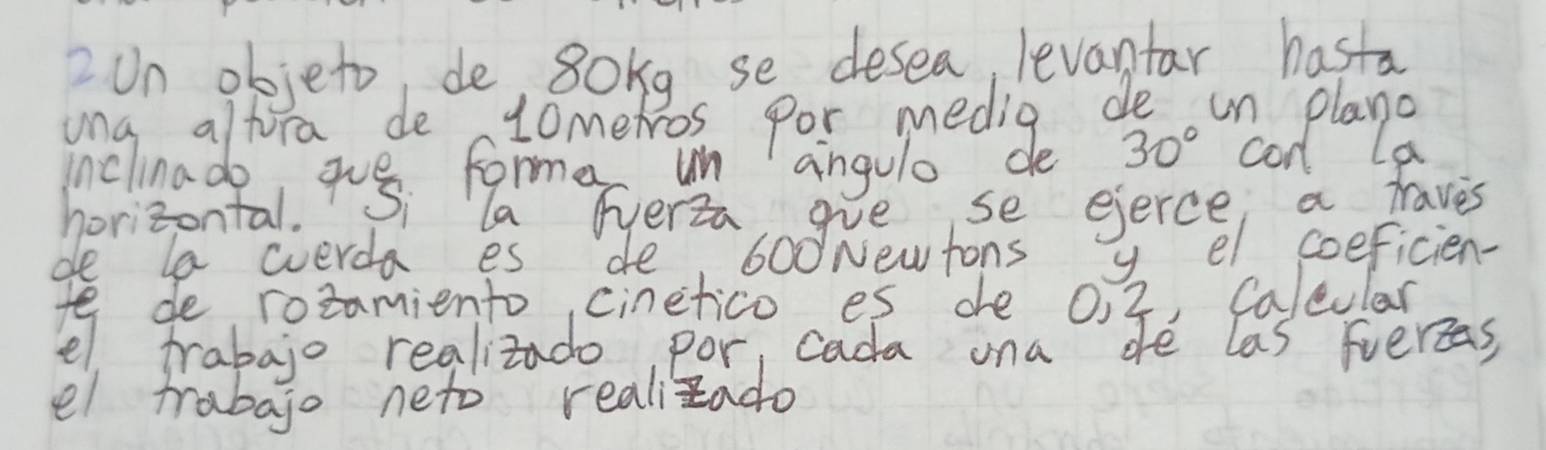 2 Un objeto, de 80Kg se desea, levantar hasta
una altura de 10metros por medio de un plano
inclinado que forma un ángulo de 30° con la
horizontal. Si la fuerza que se ejerce, a través
de la cuerda es de 600Newtons y el coeficien-
te de rozamiento cinético es de 0,2, calcular
el trabajo realizado por, cada una de las fuerzas,
el trabajo neto realizado